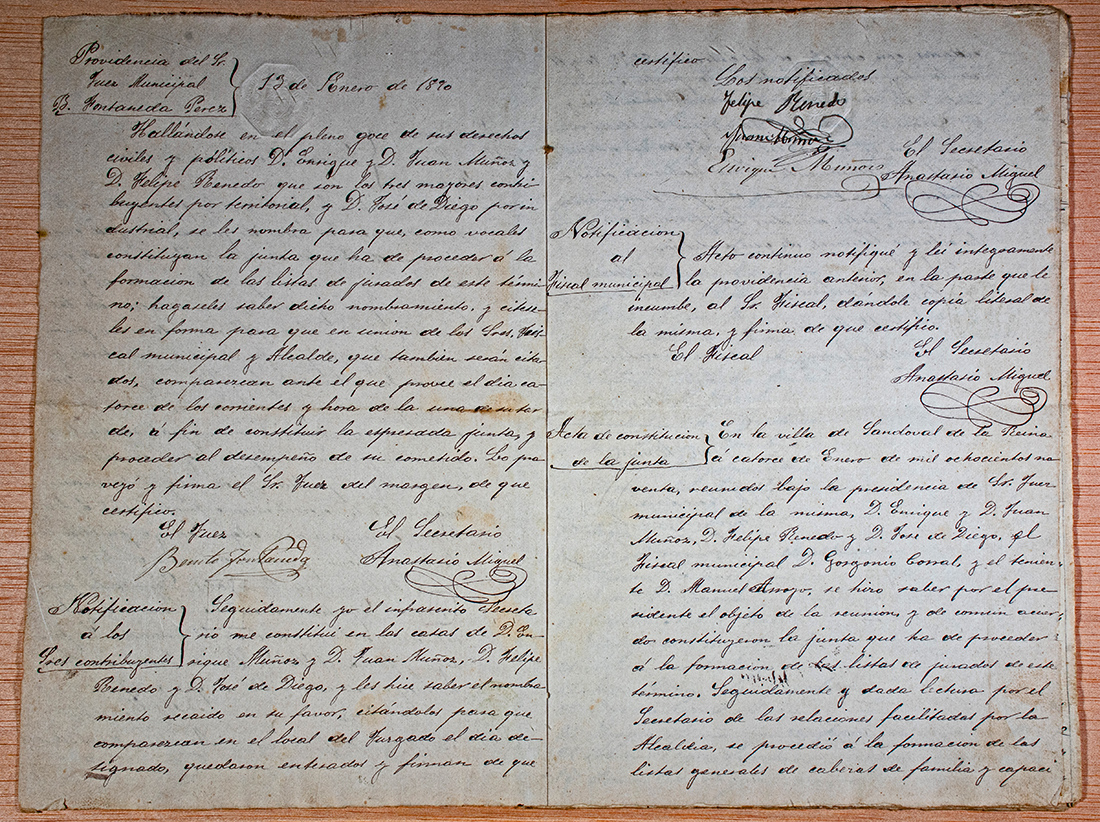 Providencia del Sr.
Juez Municipal
B. Fontaneda Perez
13 de Enero de 1890
Hallándose en el pleno goce de sus derechos
civiles y políticos D. Enrique y D. Juan Muñoz y
D. Felipe Renedo que son los tres mayores contri
buyentes por territorial, y D. José de Diego por in
dustrial, se les nombra para que, como vocales
constituyan la junta que ha de proceder á la
formacion de las listas de jurados de este térmi
no; hagaseles saber dicho nombramiento, y citese
les en forma para que en union de los Sres. Fis
cal municipal y Alcalde, que tambien serán cita
dos, comparezcan ante el que provee el dia ca
torce de los corrientes y hora de la una de su tar
de, á fin de constituir la espresada junta, y
proceder al desempeño de su cometido. Lo pro
veyó y firma el Sr. Juez del margen, de que
certifico.
El Juez
El Secretario
Benito Fontaneda
Anastasio Miguel
Notificacion
á los
Sres contribuyentes
Seguidamente yo el infrascrito Secreta
rio me constitui en las casas de D. En-
rique Muñoz y D. Juan Muñoz, D. Felipe
Renedo y D. José de Diego, y les hice saber el nombra
miento recaido en su favor, citándolos para que
comparezcan en el local del Juzgado el dia de-
signado, quedaron enterados y firman de que
certifico
Los notificados
Felipe Renedo
Juan Muñoz
Enrique Muñoz
El Secretario
Anastasio Miguel
Notificacion
al
Fiscal municipal
Acto continuo notifiqué y lei integramente
la providencia anterior, en la parte que le
incumbe, al Sr. Fiscal, dandole copia literal de
la misma, y firma, de que certifico.
El Fiscal
El Secretario
Anastasio Miguel
Acta de constitucion
de la junta
En la villa de Sandoval de la Reina
á catorce de Enero de mil ochocientos no
venta, reunidos bajo la presidencia de Sr. Juez
municipal de la misma, D. Enrique y D. Juan
Muñoz, D. Felipe Renedo y D. José de Diego, el
Fiscal municipal D. Gorgonio Corral, y el tenien-
te D. Manuel Arroyo, se hizo saber por el pre
sidente el objeto de la reunion, y de comun acuer
do constituyeron la junta que ha de proceder
á la formacion de las listas de jurados de este
término. Seguidamente y dada lectura por el
Secretario de las relaciones facilitadas por la
Alcaldia, se procedió á la formacion de las
listas generales de cabezas de familia y capaci